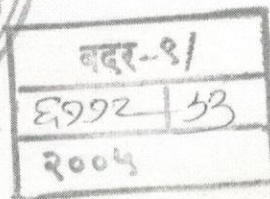 बदर-१/
६११२ | ५३
२००५